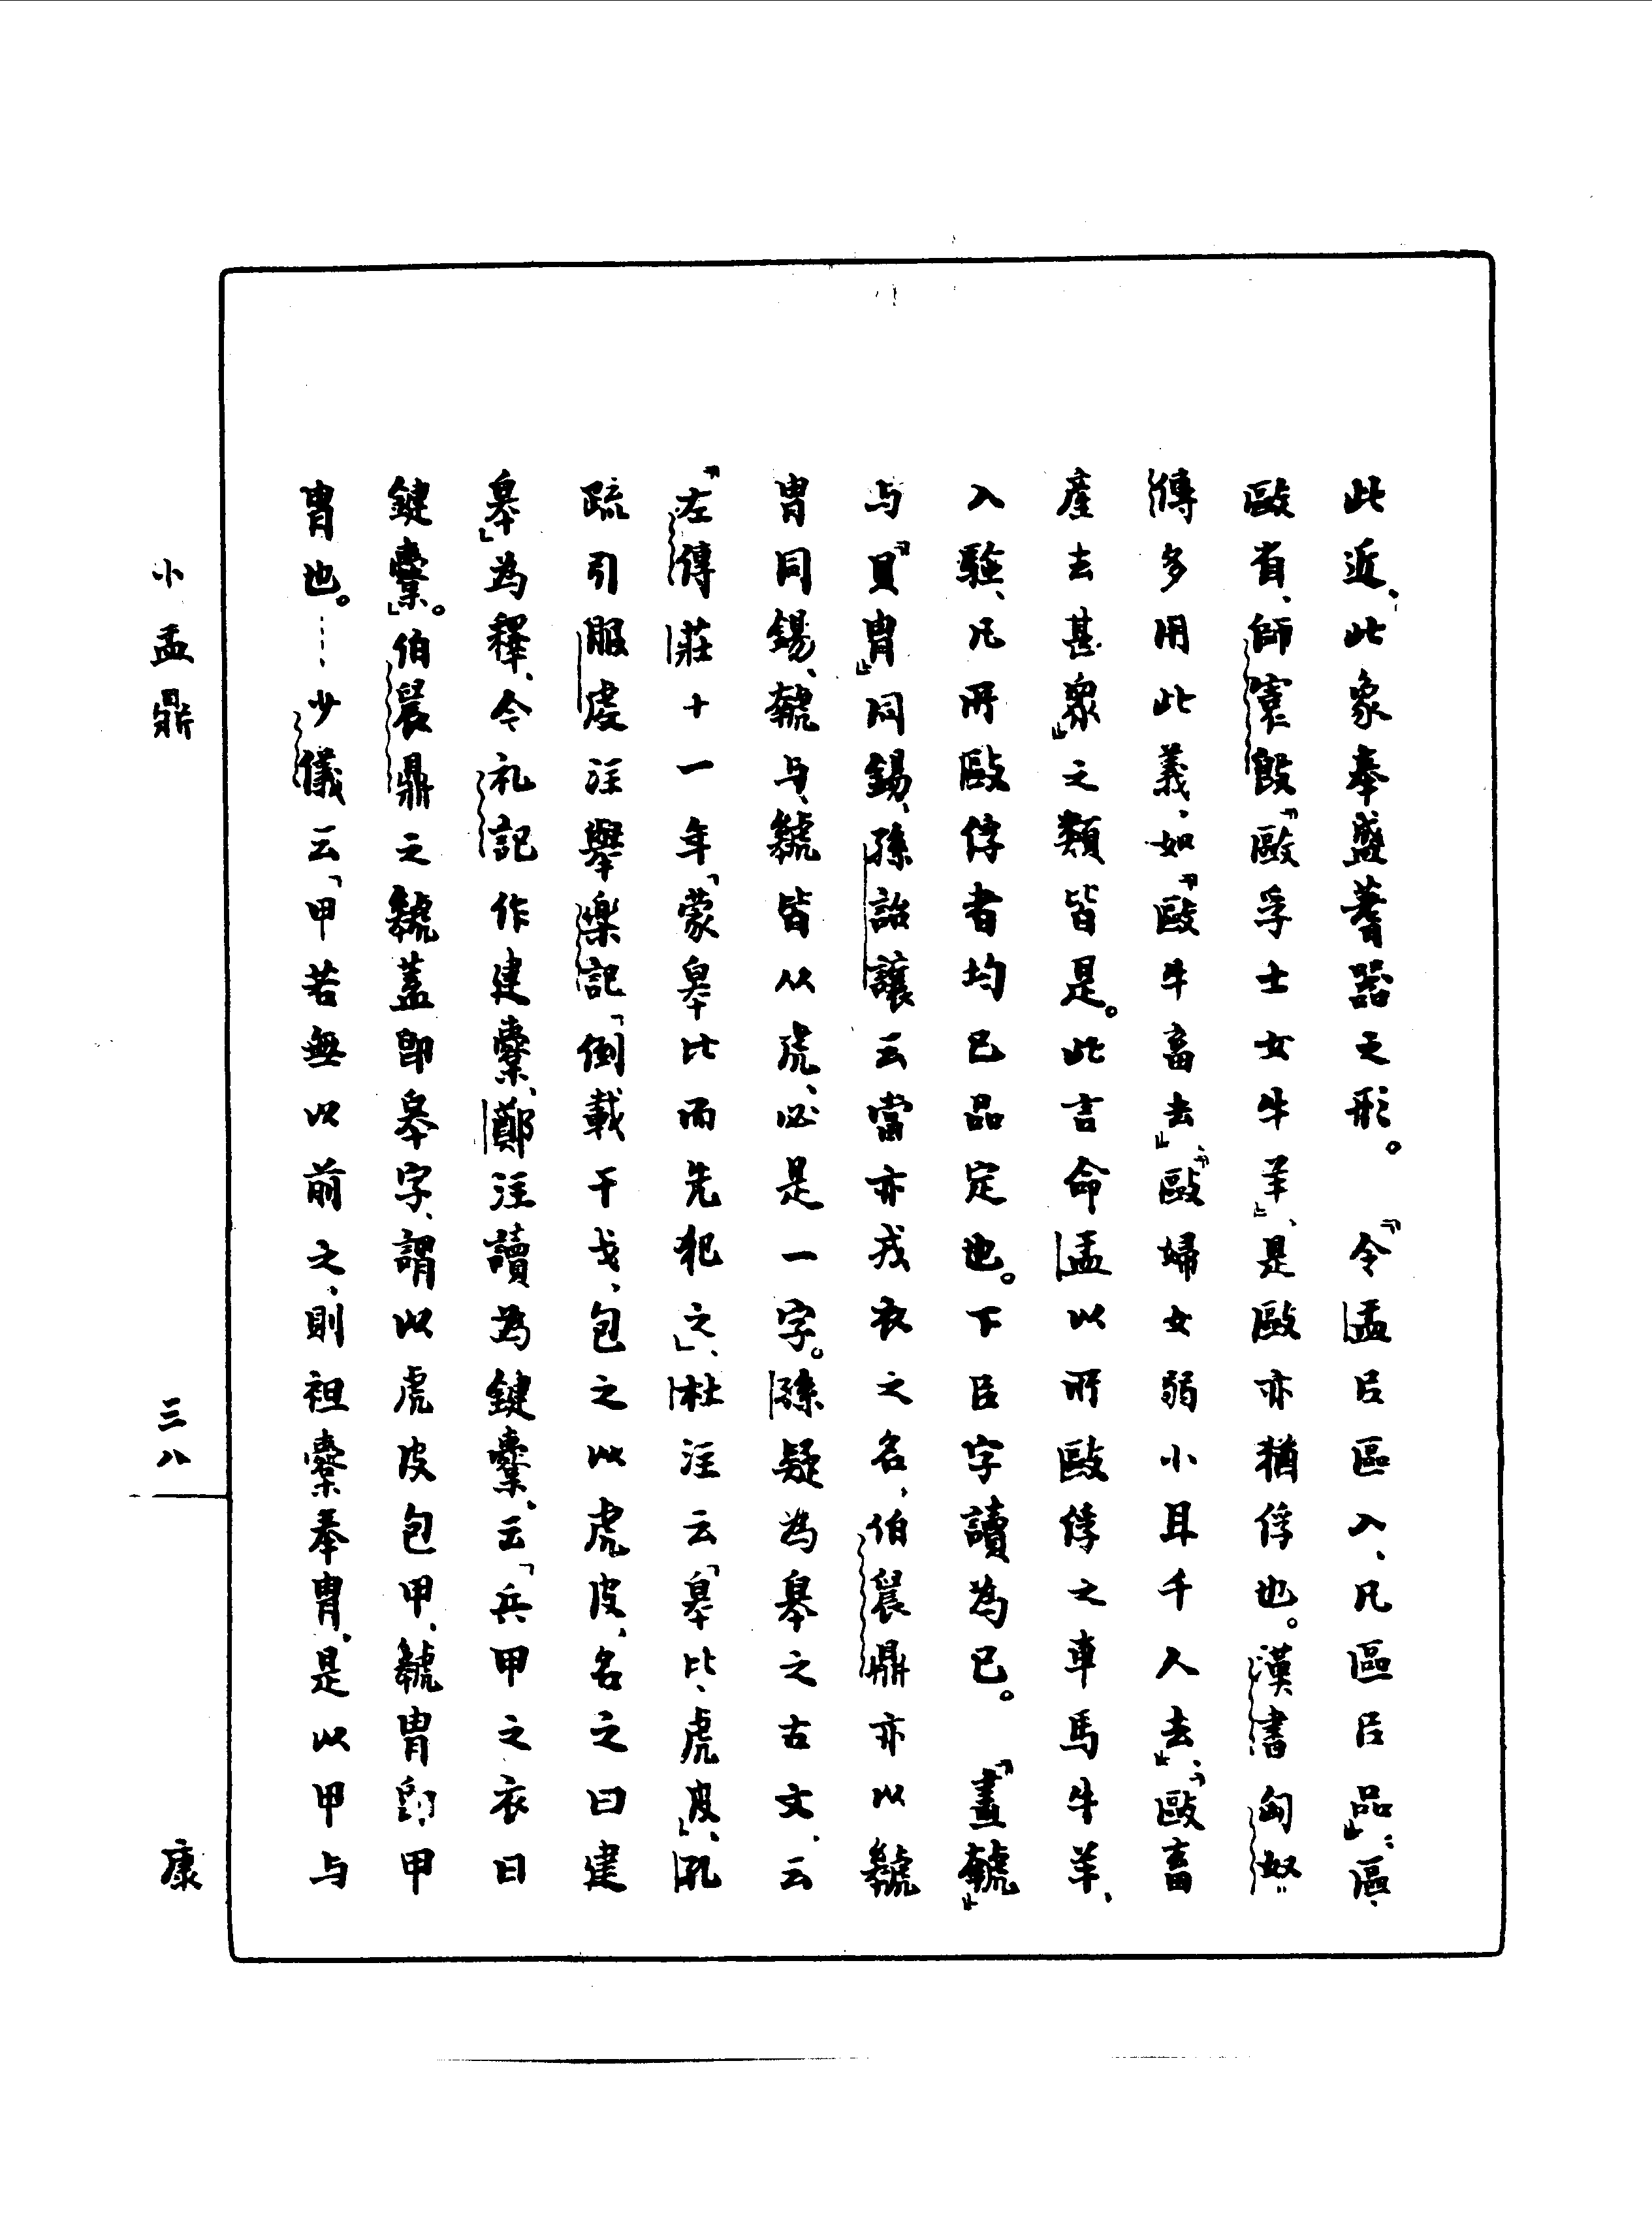 此近、此象奉盛蓍器之形。『令盂㠯區入、凡區㠯品』：區、
敺省、師㝨𣪘『敺孚士女牛羊』、是敺亦猶俘也。漢書匈奴
傳多用此義、如『敺牛畜去』、『敺婦女弱小耳千人去』、『敺畜
產去甚衆』之類皆是。此言命盂以所敺俘之車馬牛羊、
入驗、凡所敺俘者均已品定也。下㠯字讀為已。『畫䝞』
与『貝冑』同錫、孫詒讓云當亦戎衣之名、伯晨鼎亦以
冑同錫、与皆从虎、必是一字。孫疑為皋之古文、云
『左傳莊十一年「蒙皋比而先犯之」、杜注云「皋比、虎皮」、孔
疏引服虔注舉樂記「倒載干戈、包之以虎皮、名之曰建
皋」為釋、今礼記作建櫜、鄭注讀為鍵櫜、云「兵甲之衣曰
鍵櫜」。伯晨鼎之蓋即皋字、謂以虎皮包甲、冑即甲
冑也。……少儀云「甲若無以前之、則袒櫜奉冑、是以甲与
小盂鼎
三八
康